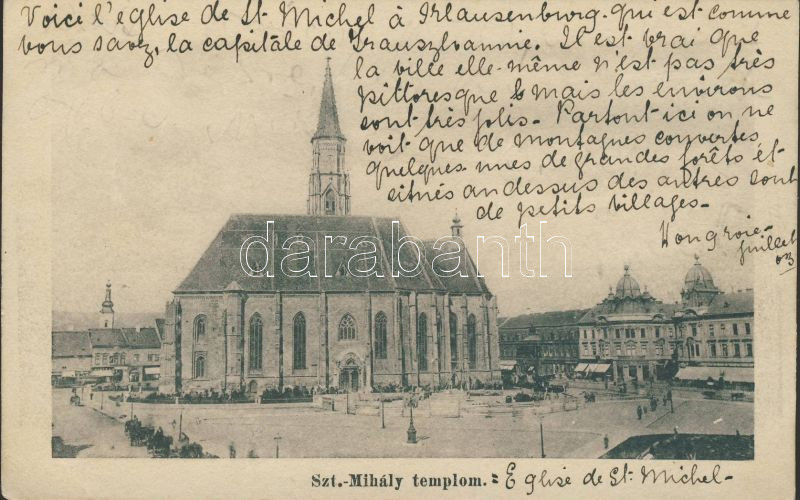 Voici l'eglise de St. Michel à Irlausenburg. qui est comme
vous savez, la capitale de Trauszlvannie. Il est vrai que
la ville elle-même n'est pas très
pittoresque & mais les environs
sont très jolis - Partout ici on ne
voit que de montagnes couvertes,
quelques-unes de grandes forêts et
situés au dessus des autres sont
de petits villages -
Hongroie -
juillet
03
darabanth
Szt.-Mihály templom. = Eglise de St. Michel -